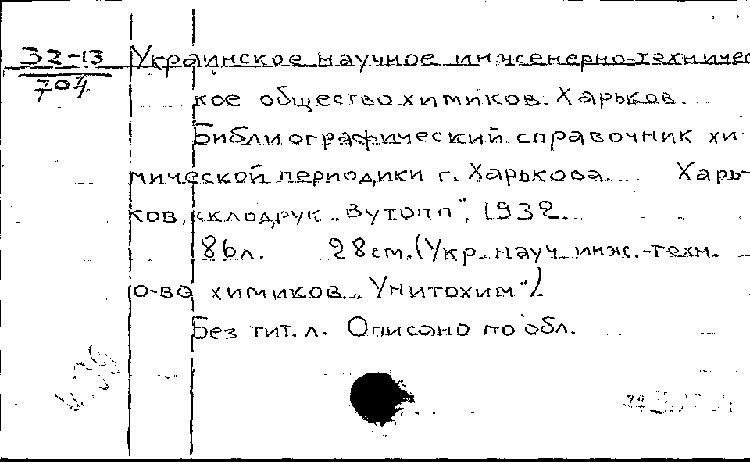 32-13
704
Украинское научное инженерно-техничес
кое общество химиков. Харьков.
Библиографический справочник хи-
мической периодики г. Харькова. Харь-
ков, склодрук „Вутопп", 1932.
86л. 28см. (Укр. науч. инж.-техн.
о-во химиков „Унитохим")
Без тит. л. Описано по обл.